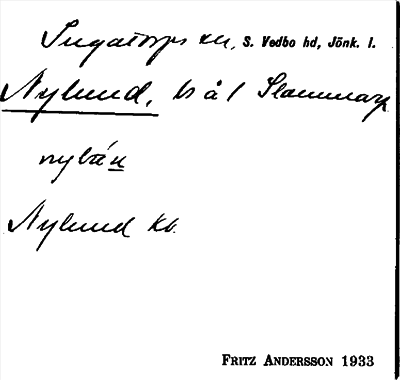 Ingatorps sn, S. Vedbo hd, Jönk. l.
Nylund, ls å 1 Slammarp
nylún
Nylund kb.
FRITZ ANDERSSON 1933